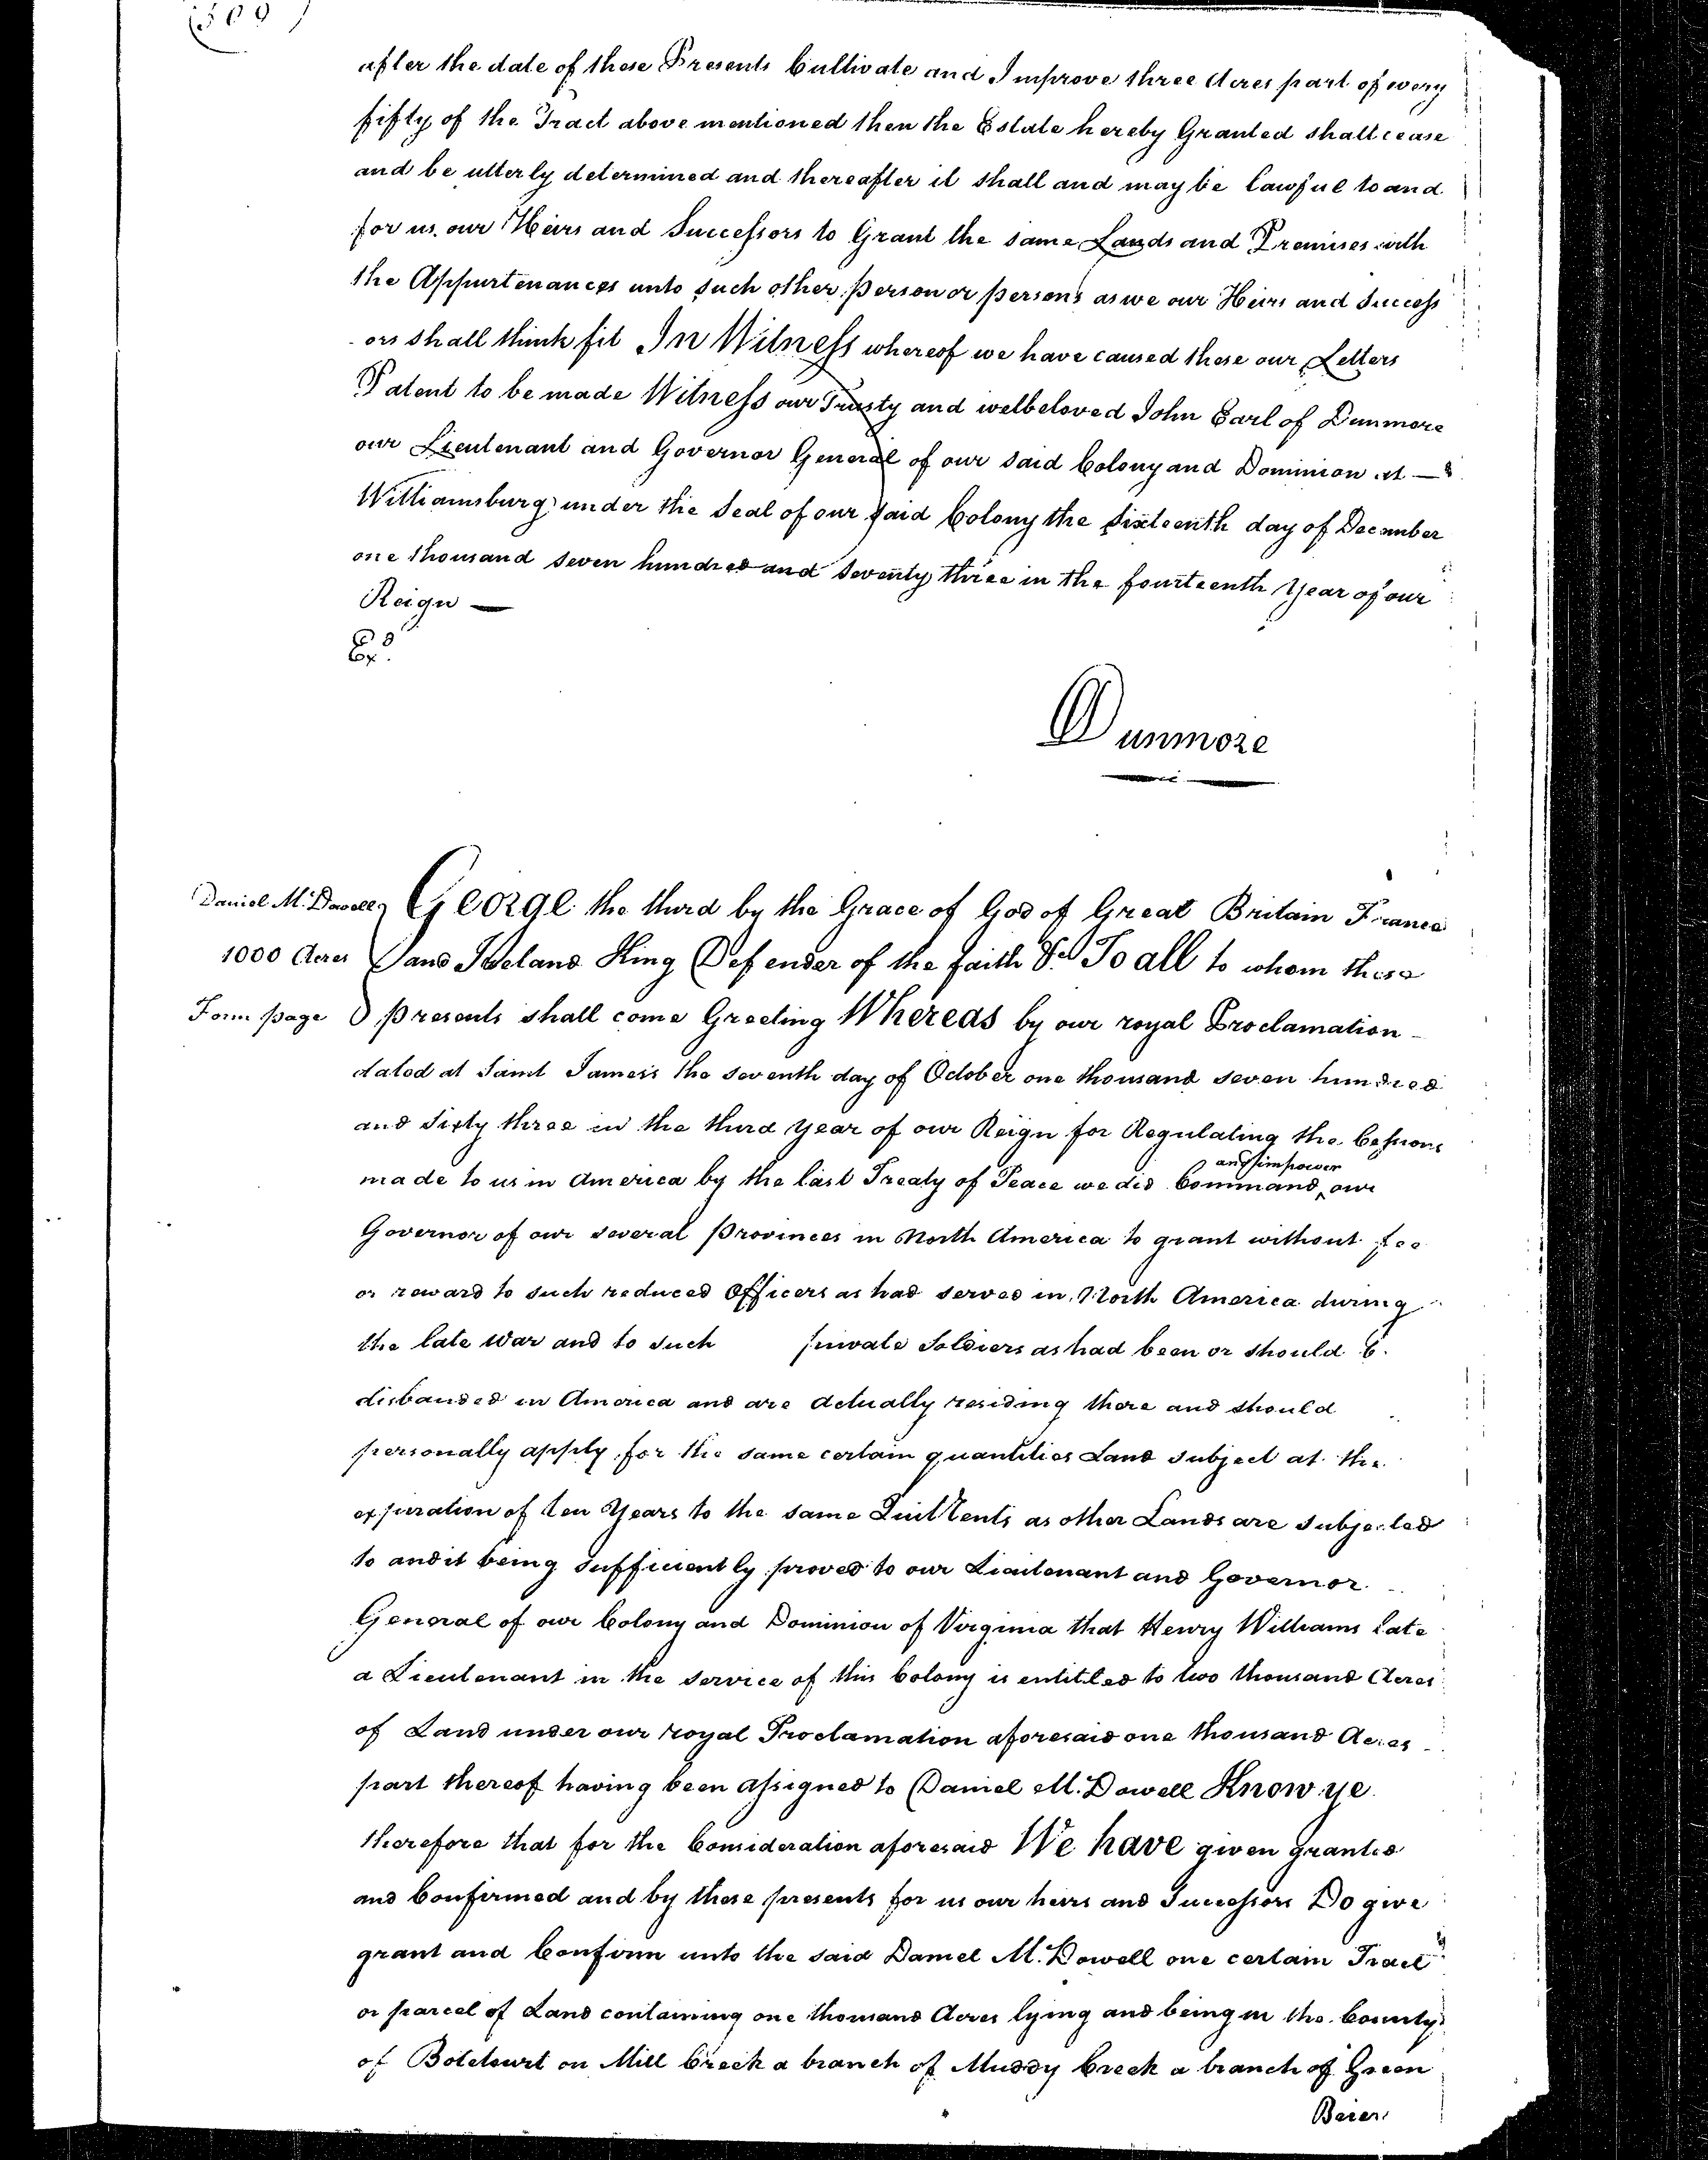 (509)
after the date of these Presents Cultivate and Improve three Acres part of every
fifty of the Tract above mentioned then the Estate hereby Granted shall cease
and be utterly determined and thereafter it shall and may be lawful to and
for us our Heirs and Successors to Grant the same Lands and Premises with
the Appurtenances unto such other person or persons as we our Heirs and Success
-ors shall think fit In Witness whereof we have caused these our Letters
Patent to be made Witness our Trusty and welbeloved John Earl of Dunmore
our Lieutenant and Governor General of our said Colony and Dominion at —
Williamsburg under the Seal of our said Colony the sixteenth day of December
one thousand seven hundred and seventy three in the fourteenth Year of our
Reign —
Exd.
Dunmore
Daniel Mc. Dowell
1000 Acres
Form page
George the third by the Grace of God of Great Britain France
and Ireland King Defender of the faith &c. To all to whom these
presents shall come Greeting Whereas by our royal Proclamation -
dated at Saint James's the seventh day of October one thousand seven hundred
and sixty three in the third Year of our Reign for Regulating the Cessions
and impower
made to us in America by the last Treaty of Peace we did Command ‸ our
Governor of our several Provinces in North America to grant without fee
or reward to such reduced Officers as had served in North America during
the late War and to such private Soldiers as had been or should b.
disbanded in America and are actually residing there and should
personally apply for the same certain quantities Land subject at the
expiration of ten Years to the same Quit Rents as other Lands are subjected
to and it being sufficiently proved to our Lieutenant and Governor
General of our Colony and Dominion of Virginia that Henry Williams late
a Lieutenant in the service of this Colony is entitled to two thousand Acres
of Land under our royal Proclamation aforesaid one thousand Acres
part thereof having been assigned to Daniel Mc. Dowell Know ye
therefore that for the Consideration aforesaid We have given granted
and Confirmed and by these presents for us our heirs and Successors Do give
grant and Confirm unto the said Daniel Mc. Dowell one certain Tract
or parcel of Land containing one thousand Acres lying and being in the County
of Botetourt on Mill Creek a branch of Muddy Creek a branch of Green
Beier